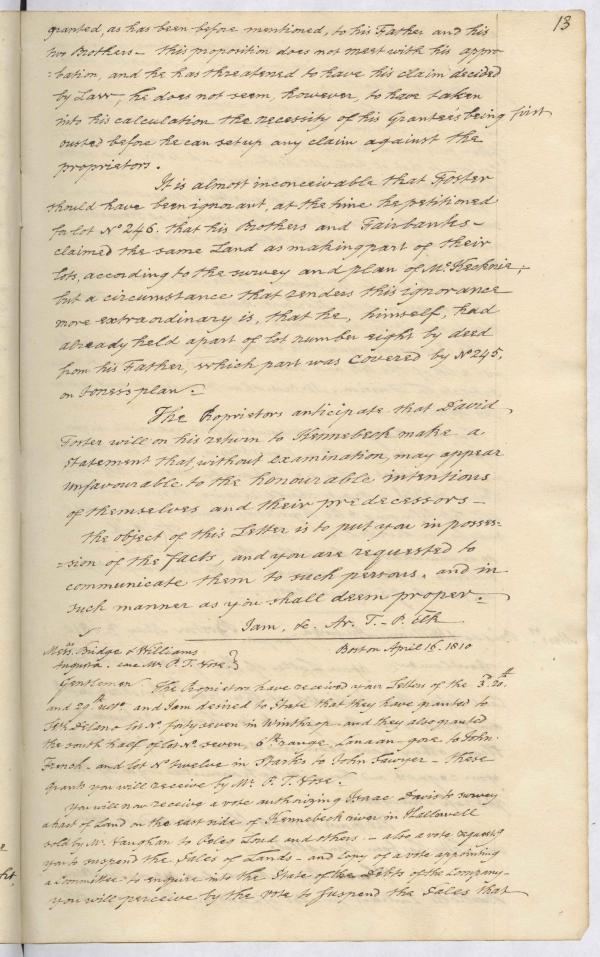 13
granted, as has been before mentioned, to his Father and his
two Brothers – this proposition does not meet with his appro
=bation, and he has threatened to have his claim decided
by Law; he does not seem, however, to have taken
into his calculation the necessity of his Grantees being first
ousted before he can set up any claim against the
proprietors.
It is almost inconceivable that Foster
should have been ignorant, at the time he petitioned
for lot No 246. that his Brothers and Fairbanks –
claimed the same Land as making part of their
lots, according to the survey and plan of Mc. Kecknie;
but a circumstance that renders this ignorance
more extraordinary is, that he, himself, had
already held a part of lot number eight by deed
from his Father, which part was covered by No 245,
on Jones's plan –
The Proprietors anticipate that David
Foster will on his return to Kennebeck make a
statement that, without examination, may appear
unfavourable to the honourable intentions
of themselves and their predecessors –
the object of this Letter is to put you in posses-
=sion of the facts, and you are requested to
communicate them to such persons, and in
such manner as you shall deem proper –
I am, &c. Ar. T. – P. Clk
Messrs. Bridge & Williams
Augusta. care Mr. P. T. Vose. }
Boston April 16. 1810
Gentlemen The Proprietors have received your Letters of the 3d. 20th.
and 29th ulto. and I am desired to State that they have granted to
Delano lot No. forty seven in Winthrop – and they also granted
the south half of lot No. seven, 6th range, Canaan – gore to John
French – and lot No twelve in Starks to John Sawyer – these
grants you will receive by Mr. P. T. Vose.
You will now receive a vote authorizing Isaac Davis to survey
a tract of Land on the east side of Kennebeck river in Hallowell
sold by Mr. Vaughan to Peleg Lord and others – also a vote requestg
you to suspend the Sales of Lands – and Copy of a vote appointing
a Committee to enquire into the State of the Debts of the Company –
you will perceive by the vote to suspend the Sales that